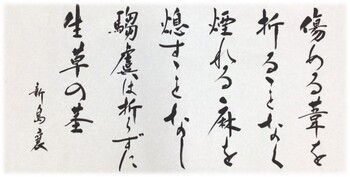 傷める葦を
折ることなく
煙れる麻を
熄すことなし
騶虞は折らずに
生草の茎
新島襄